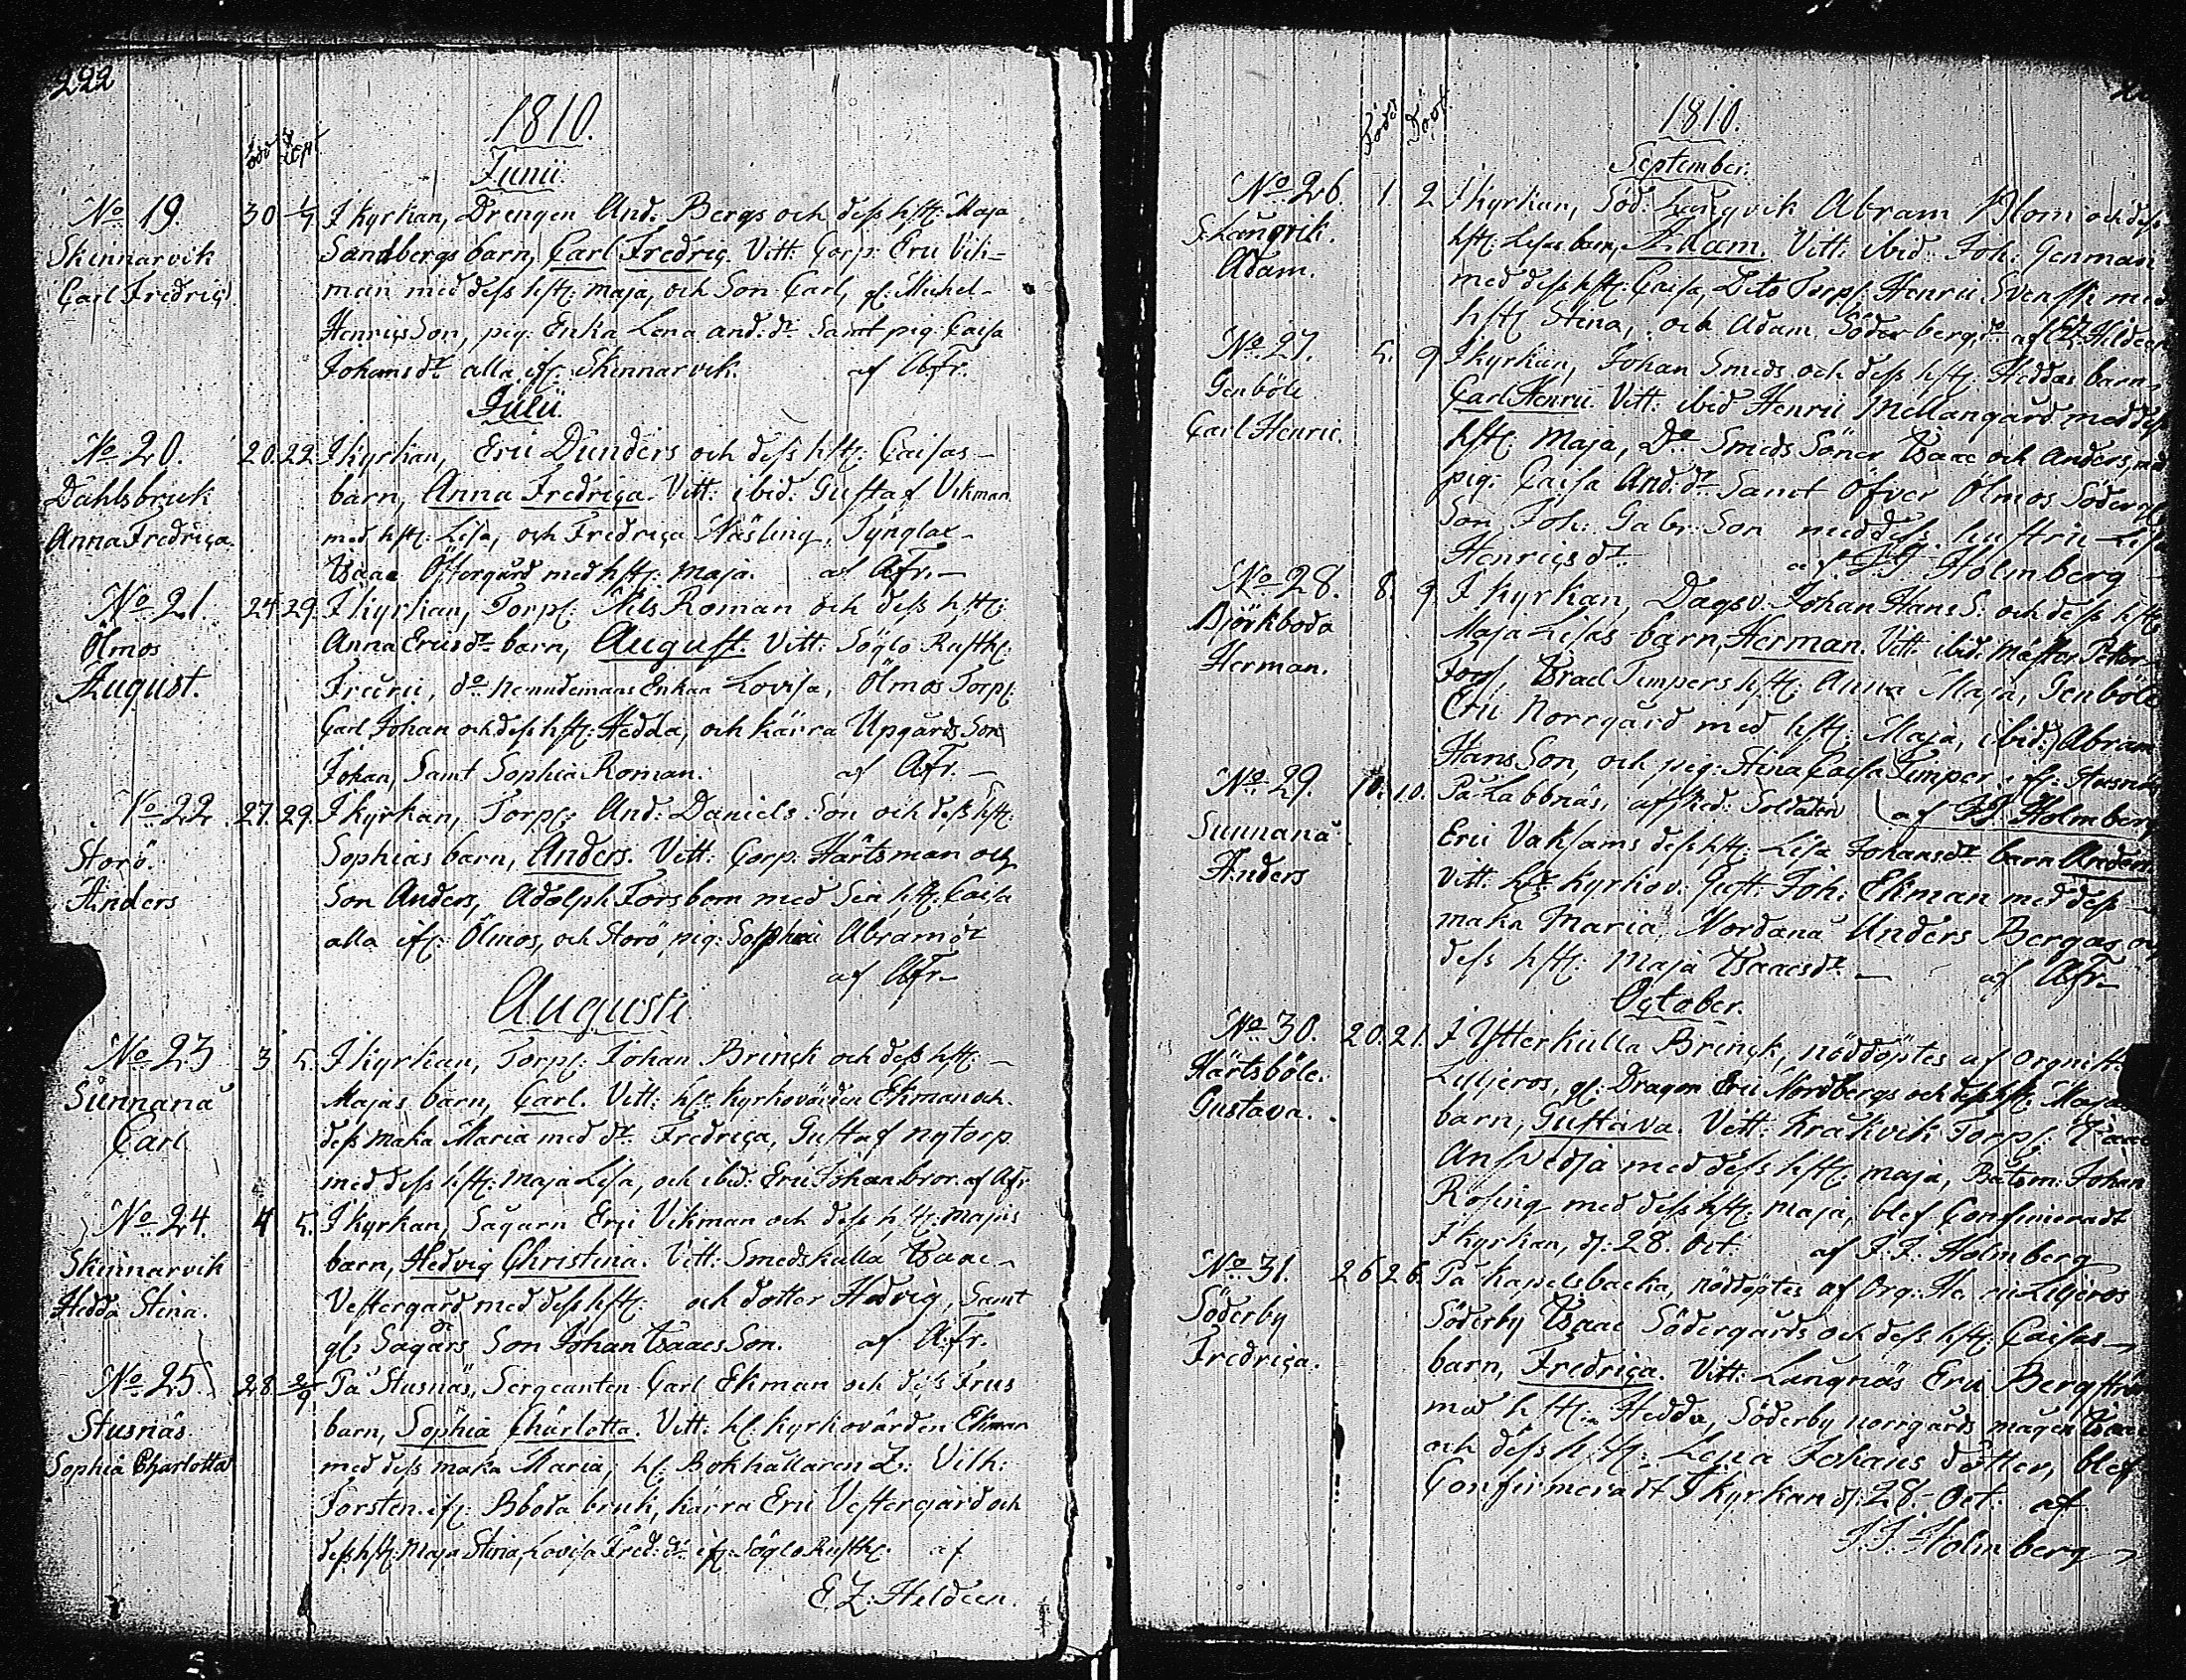 222
1810.
Junii.
No 19. 30 1/7 I kyrkan, Drengen And: Bergs och dess hst: Maja
Skinnarvik Sandbergs barn, Carl Fredric. Vitt: Corp: Eric Vik=
Carl Fredric man med dess hst: Maja, och Son Carl, gl: Michel
Henrics Son, pig: Enka Lena And: dr Samt pig: Caisa
Johansdr alla if: Skinnarvik. af AFr.
Julii.
No 20. 20. 22. I kyrkan, Eric Dunders och dess hst: Caisas
Dahlsbruk barn, Anna Fredrica. Vitt: ibid: Gustaf Vikman
Anna Fredrica. med hst: Lisa, och Fredrica Näsling, Tynglax
Isaac Östergård med hst: Maja. af AFr.
No 21. 24. 29. I kyrkan, Torp: Nils Roman och dess hst:
Ölmos Anna Ericsdr barn, August. Vitt: Söglö Rusth:
August. do Nemndemans Enkan Lovisa, Ölmos Torp:
Carl Johan och dess hst: Hedda, och kärra Upgårds Son
Johan, Samt Sophia Roman. af AFr.
No 22. 27. 29. I kyrkan, Torp: And: Daniels Son och dess hst:
Storö. Sophias barn, Anders. Vitt: Corp: Härtsman och
Anders Son Anders, Adolph Forsbom med Sin hst: Caisa
alla if: Ölmos, och Storö pig: Sophia Abramsdr
af AFr
Augusti
No 23 3 5. I kyrkan, Torp: Johan Brinck och dess hst:
Sunnanå Majas barn, Carl. Vitt: Hr kyrkovärden Ekman och
Carl. dess maka Maria med dr Fredrica, Gustaf Nytorp
med dess hst: Maja Lisa, och ibid: Eric Johan bror. af AFr
No 24. 4 5. I kyrkan, Sågarn Eric Vikman och dess hst: Majas
Skinnarvik barn, Hedvig Christina. Vitt: Smedskulla Isaac
Hedda Stina. Vestergård med dess hst: och dotter Hedvig, Samt
gl: Sagars Son Johan Isaacs Son. af AFr.
No 25. 28 2/9 På Stusnäs, Sergeanten Carl Ekman och dess Frus
Stusnäs barn, Sophia Charlotta. Vitt: H: kyrkovärden Ekman
Sophia Charlotta med dess maka Maria, H: Bokhållaren Z: Vilh:
Forsten if: Bboda bruk, kärra Eric Vestergård och
dess hst: Maja Stina, Lovisa Fred: dr if: Söglö Rusth: af
E. Z: Hildeen.
1810.
Född Döpt
September.
No 26. 1. 2 I kyrkan, Söd: Långvik Abram Blom och dess
S. Långvik. hst: Lisas barn, Adam. Vitt: ibid: Joh: Genman
Adam. med dess hst: Caisa, Dito Torp: Henric Svensk med
hst: Stina, och Adam Söderberg do af EZ. Hildeen
No 27. 5. 9 I kyrkan, Johan Smeds och dess hst: Heddas barn
Genböle Carl Henric. Vitt: ibid Henric Mellangård med dess
Carl Henric. hst: Maja, Do Smeds Söner Isaac och Anders, med
pig: Caisa And: dr Samt Öfver Ölmos Södergl
Son Joh: Gabr: Son med dess hustru Lisa
Henricsdr af JJ Holmberg
No 28. 8. 9. I kyrkan, Dagsv. Johan Hans S: och dess hst:
Björkboda Maja Lisas barn, Herman. Vitt: ibid: Mäster Petter
Herman. Fors, Israel Timpers hst: Anna Maja, Genböle
Eric Norrgård med hst: Maja, ibid: Abram
Hans Son, och pig: Stina Caisa Timper if: Stusnäs
No 29. 10. 10. På Labbnäs, afsked: Soldaten af JJ Holmberg
Sunnanå Eric Vaksams dess hst: Lisa Johansdr barn Anders
Anders Vitt: Hr kyrkov: Joh: Ekman med dess
maka Maria Nordanå Anders Bergas o
dess hst: Maja Isaacsdr af AFr
October.
No 30. 20. 21. I Ytterkulla Brinck, nöddöptes af orgnist:
Härtsböle. Lilljeros, gl: Dragon Eric Nordbergs och dess hst: Maja
Gustava. barn, Gustava. Vitt: Kråkvik Torp: Isaac
Ansvedja med dess hst: Maja, Båtsm: Johan
Rösing med dess hst: Maja, blef Confirmeradt
I kyrkan, d: 28. Oct: af J. J. Holmberg
No 31. 26 26. På Kapelsbacka, nöddöptes af Org: Liljeros
Söderby Söderby Isaac Södergårds och dess hst: Caisas
Fredrica. barn, Fredrica. Vitt: Långnäs Eric Bergström
med hst: Hedda, Söderby norrgårds mågen Isaac
och dess hst: Lena Johans dotter, blef
Confirmeradt I kyrkan d: 28. Oct: af
J. J. Holmberg